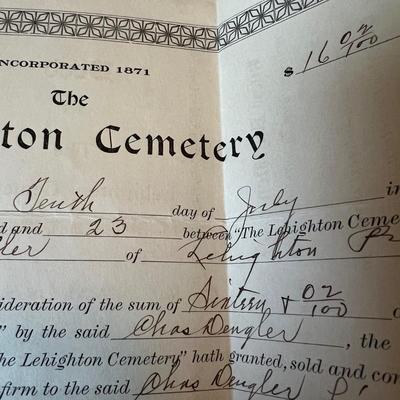 NCORPORATED 1871
$ 16 02/100
The
ton Cemetery
Tenth day of July in
d and 23 between "The Lehighton Ceme
ler of Lehighton Pa
sideration of the sum of Sixteen & 02/100
" by the said Chas Dengler, the
he Lehighton Cemetery" hath granted, sold and con
firm to the said Chas Dengler